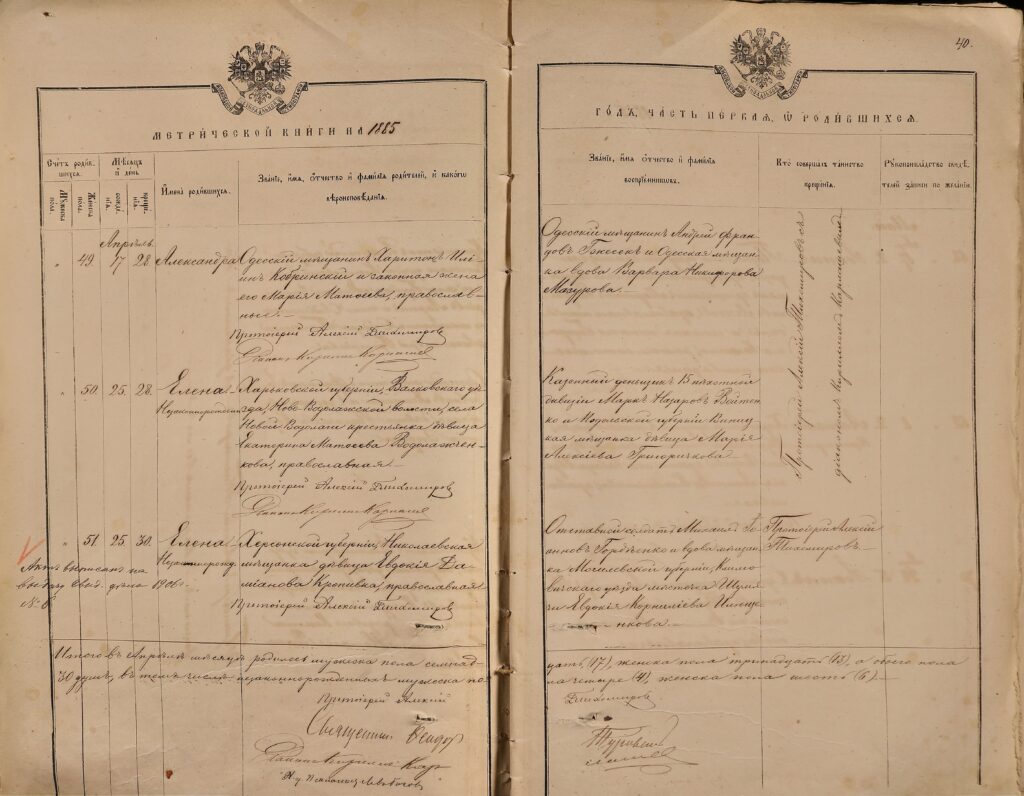 40.
МЕТРИЧЕСКОЙ КНИГИ НА 1885
ГОДЪ, ЧАСТЬ ПЕРВАЯ, Ѡ РОДИВШИХСЯ
Счетъ родив-
шихся.
Мѣсяцъ
и день
Мужеска
полу.
Женска
полу.
рожде-
нія.
креще-
нія.
Имена родившихся.
Званіе, имя, отчество и фамилія родителей, и какого
вѣроисповѣданія.
Званіе, имя отчество и фамилія
воспріемниковъ.
Кто совершалъ таинство
крещенія.
Рукоприкладство свидѣ-
телей записи по желанію.
Апрѣль
49. 17 28. Александра
Одесскій мѣщанинъ Харитонъ Иль-
инъ Кобринскій и законная жена
его Марія Матѳеева, православ-
ные.
Протоіерей Алексій Тихомировъ
Діаконъ Кириллъ
Одесскій мѣщанинъ Андрей
и Одесская мѣщан-
ка вдова Варвара Никифорова
Мазурова.
Протоіерей Алексій Тихомировъ съ
діакономъ Кирилломъ
50. 25. 28. Елена
Незаконнорожден
Харьковской губерніи, Валковскаго уѣ-
зда, Ново-Водолажской волости, села
Новой Водолаги крестьянка дѣвица
Екатерина Матѳеева Водолажчен-
кова, православная.
Протоіерей Алексій Тихомировъ
Діаконъ Кириллъ
Казенный денщикъ 15 пѣхотной
дивизіи Маркъ Назаровъ Войтен-
ко и Подольской губерніи Винниц-
кая мѣщанка дѣвица Марія
Алексѣева Григоричкова
51. 25. 30. Елена
Херсонской губерніи, Николаевская
мѣщанка дѣвица Евдокія Да-
міанова Кропивка, православная.
Протоіерей Алексій Тихомировъ
Отставной солдатъ Михаилъ Іо-
анновъ и вдова мѣщан-
ка Могилевской губерніи, Климо-
вичскаго уѣзда мѣстечка
Евдокія Корниліева
Протоіерей Алексій
Тихомировъ.
Актъ выписанъ на
выдачу 1906 г.
№ 6
Итого въ Апрѣлѣ мѣсяцѣ родилось мужеска пола семнад-
цать (17), женска пола тринадцать (13), а обоего пола
30 душъ, въ томъ числѣ незаконнорожденныхъ мужеска по-
ла четыре (4), женска пола шесть (6).
Протоіерей Алексій
Тихомировъ
Священникъ
Діаконъ Кириллъ